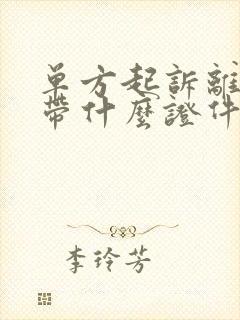 单方起訴離
帶什麼證件
李玲芳